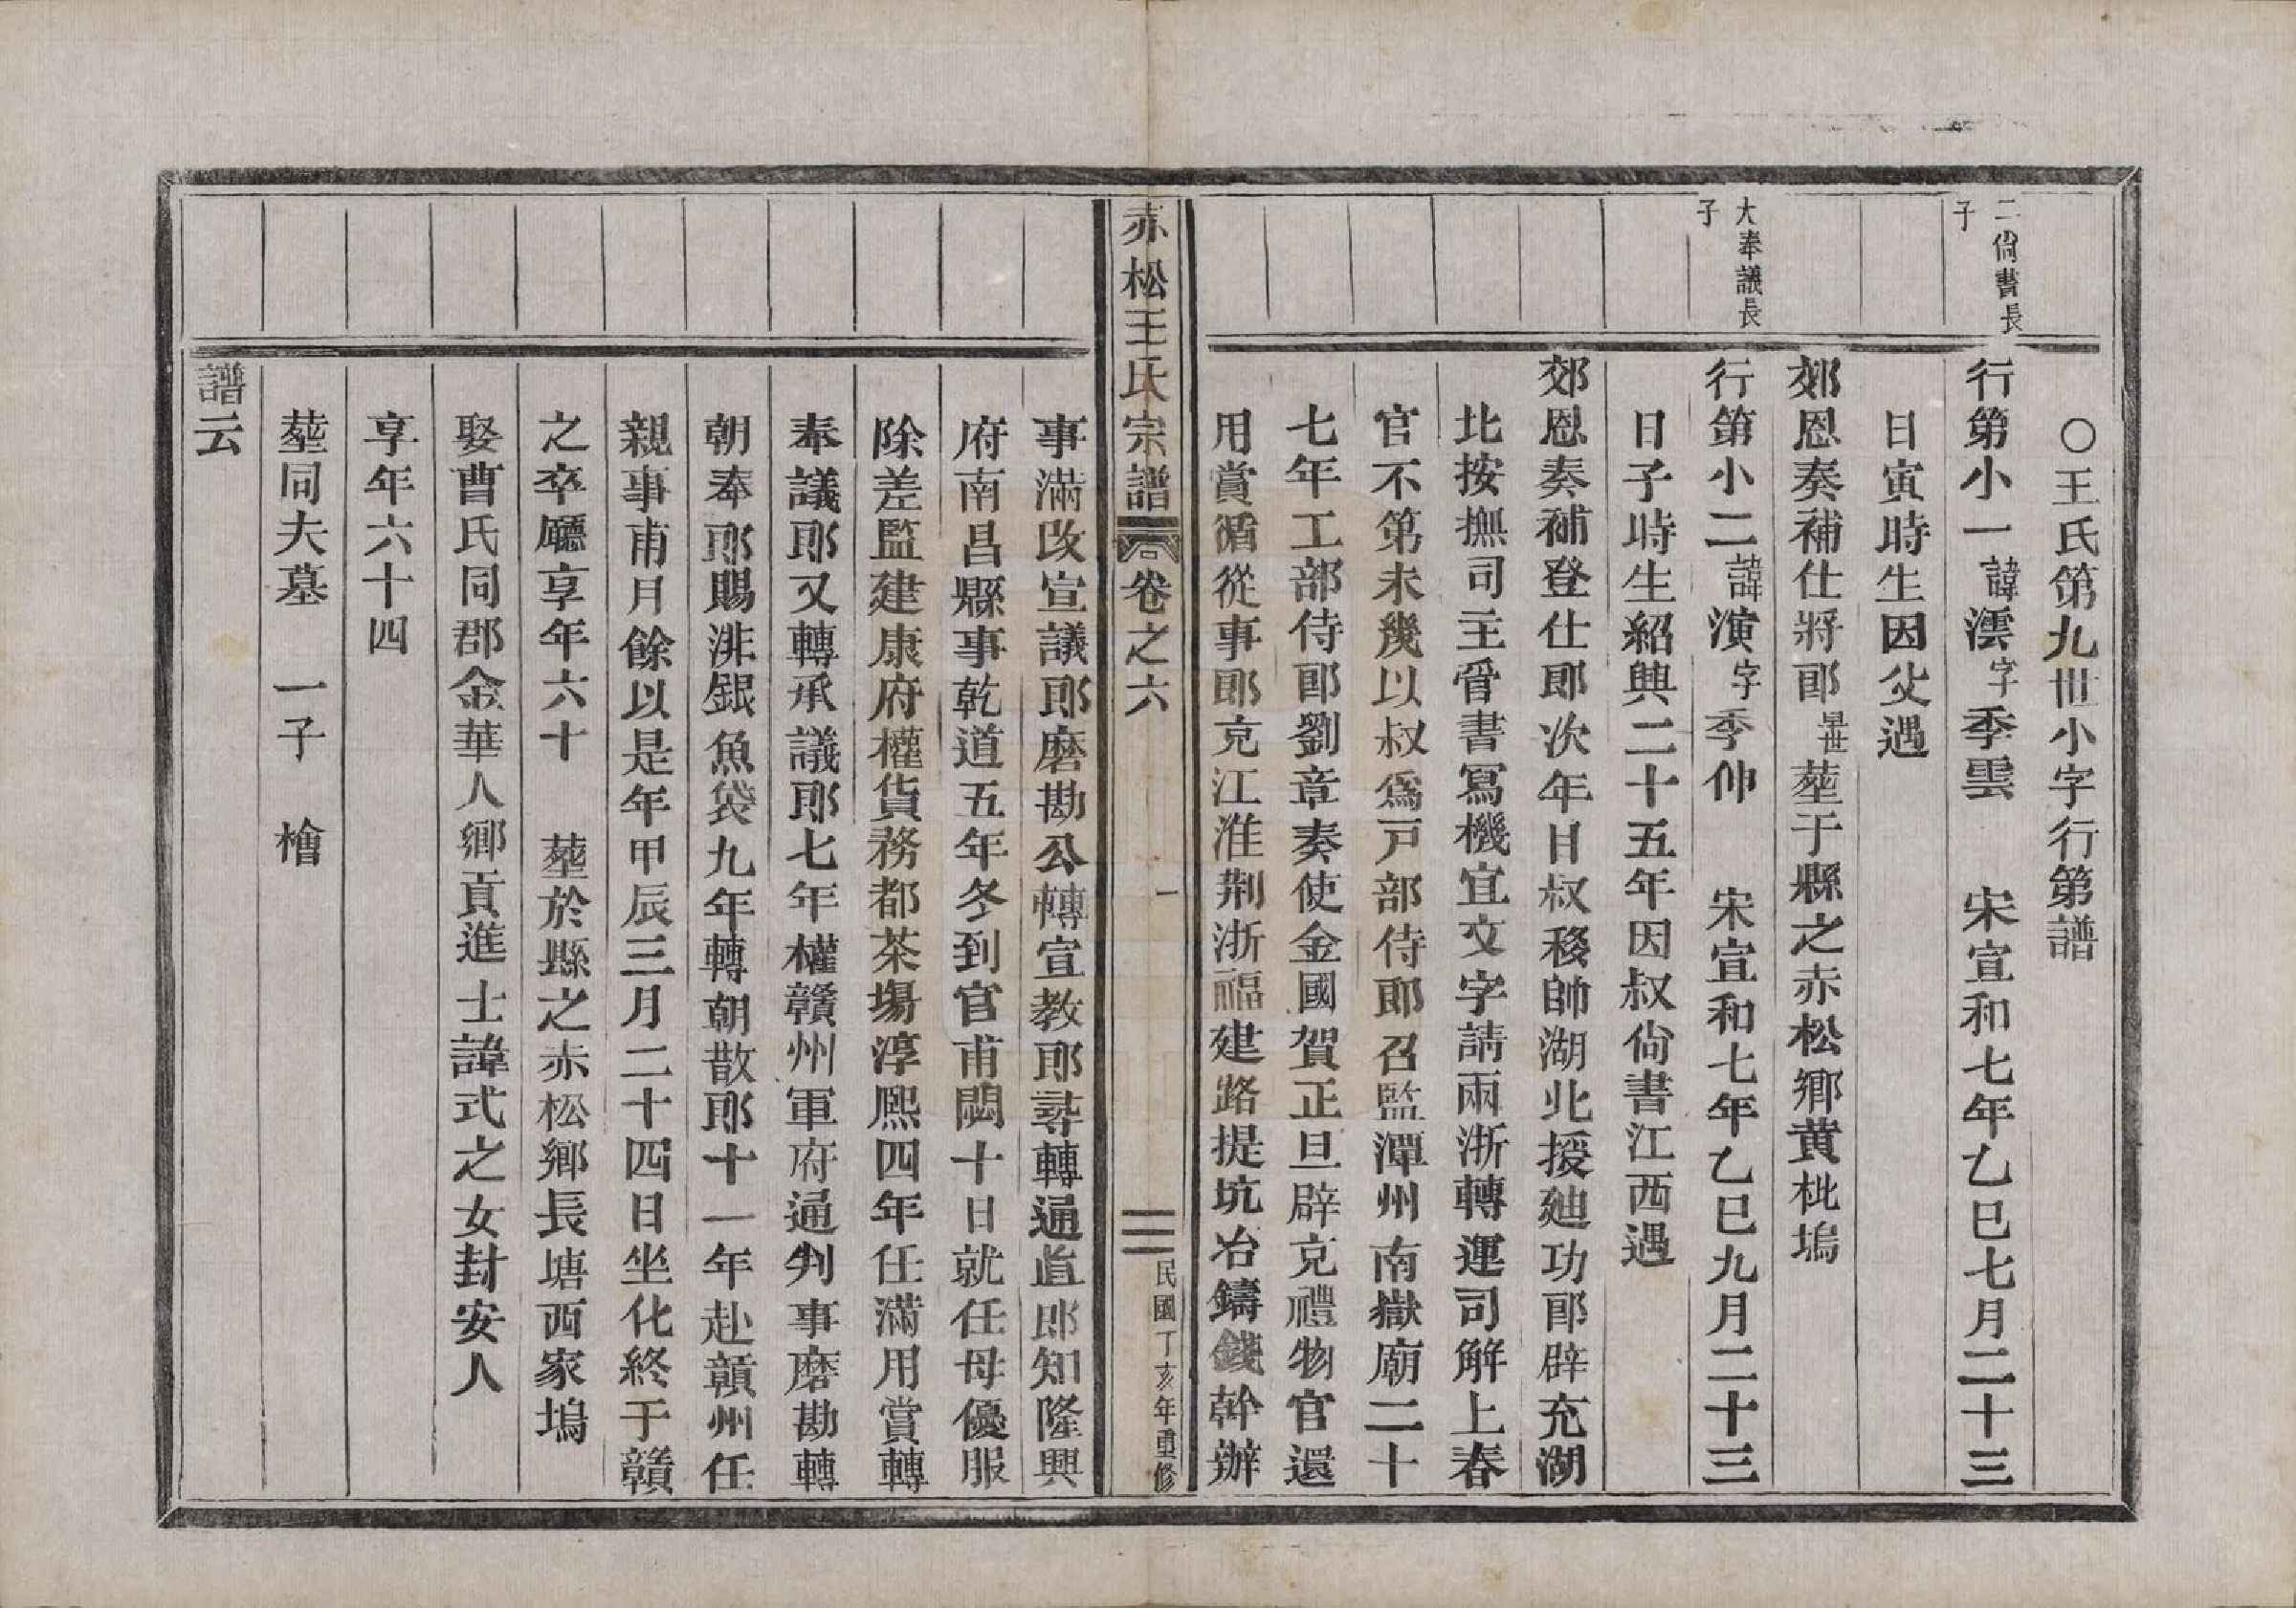 ○王氏第九世小字行第譜
二尙書長子
行第小一諱澐字季雲 宋宣和七年乙巳七月二十三
日寅時生因父遇
郊恩奏補仕將郎早世塟于縣之赤松鄉黄枇塢
大奉議長子
行第小二諱演字季仲 宋宣和七年乙巳九月二十三
日子時生紹興二十五年因叔尙書江西遇
郊恩奏補登仕郎次年日叔移帥湖北授廸功郎辟充湖
北按撫司主管書寫機宜文字請兩浙轉運司解上春
官不第未幾以叔爲戸部侍郎召監潭州南嶽廟二十
七年工部侍郎劉章奏使金國賀正旦辟充禮物官還
用賞循從事郎充江淮荆浙福建路提坑冶鑄錢幹辦
赤松王氏宗譜 卷之六 一 三 民國丁亥年重修
事滿改宣議郎磨勘公轉宣教郎尋轉通直郎知隆興
府南昌縣事乾道五年冬到官甫閱十日就任母優服
除差監建康府權貨務都茶塲淳熙四年任滿用賞轉
奉議郎又轉承議郎七年權贛州軍府通判事磨勘轉
朝奉郎賜渄銀魚袋九年轉朝散郎十一年赴贛州任
親事甫月餘以是年甲辰三月二十四日坐化終于贛
之卒廳享年六十 塟於縣之赤松鄉長塘西家塢
娶曹氏同郡金華人鄉貢進士諱式之女封安人
享年六十四
塟同夫墓 一子 檜
譜云